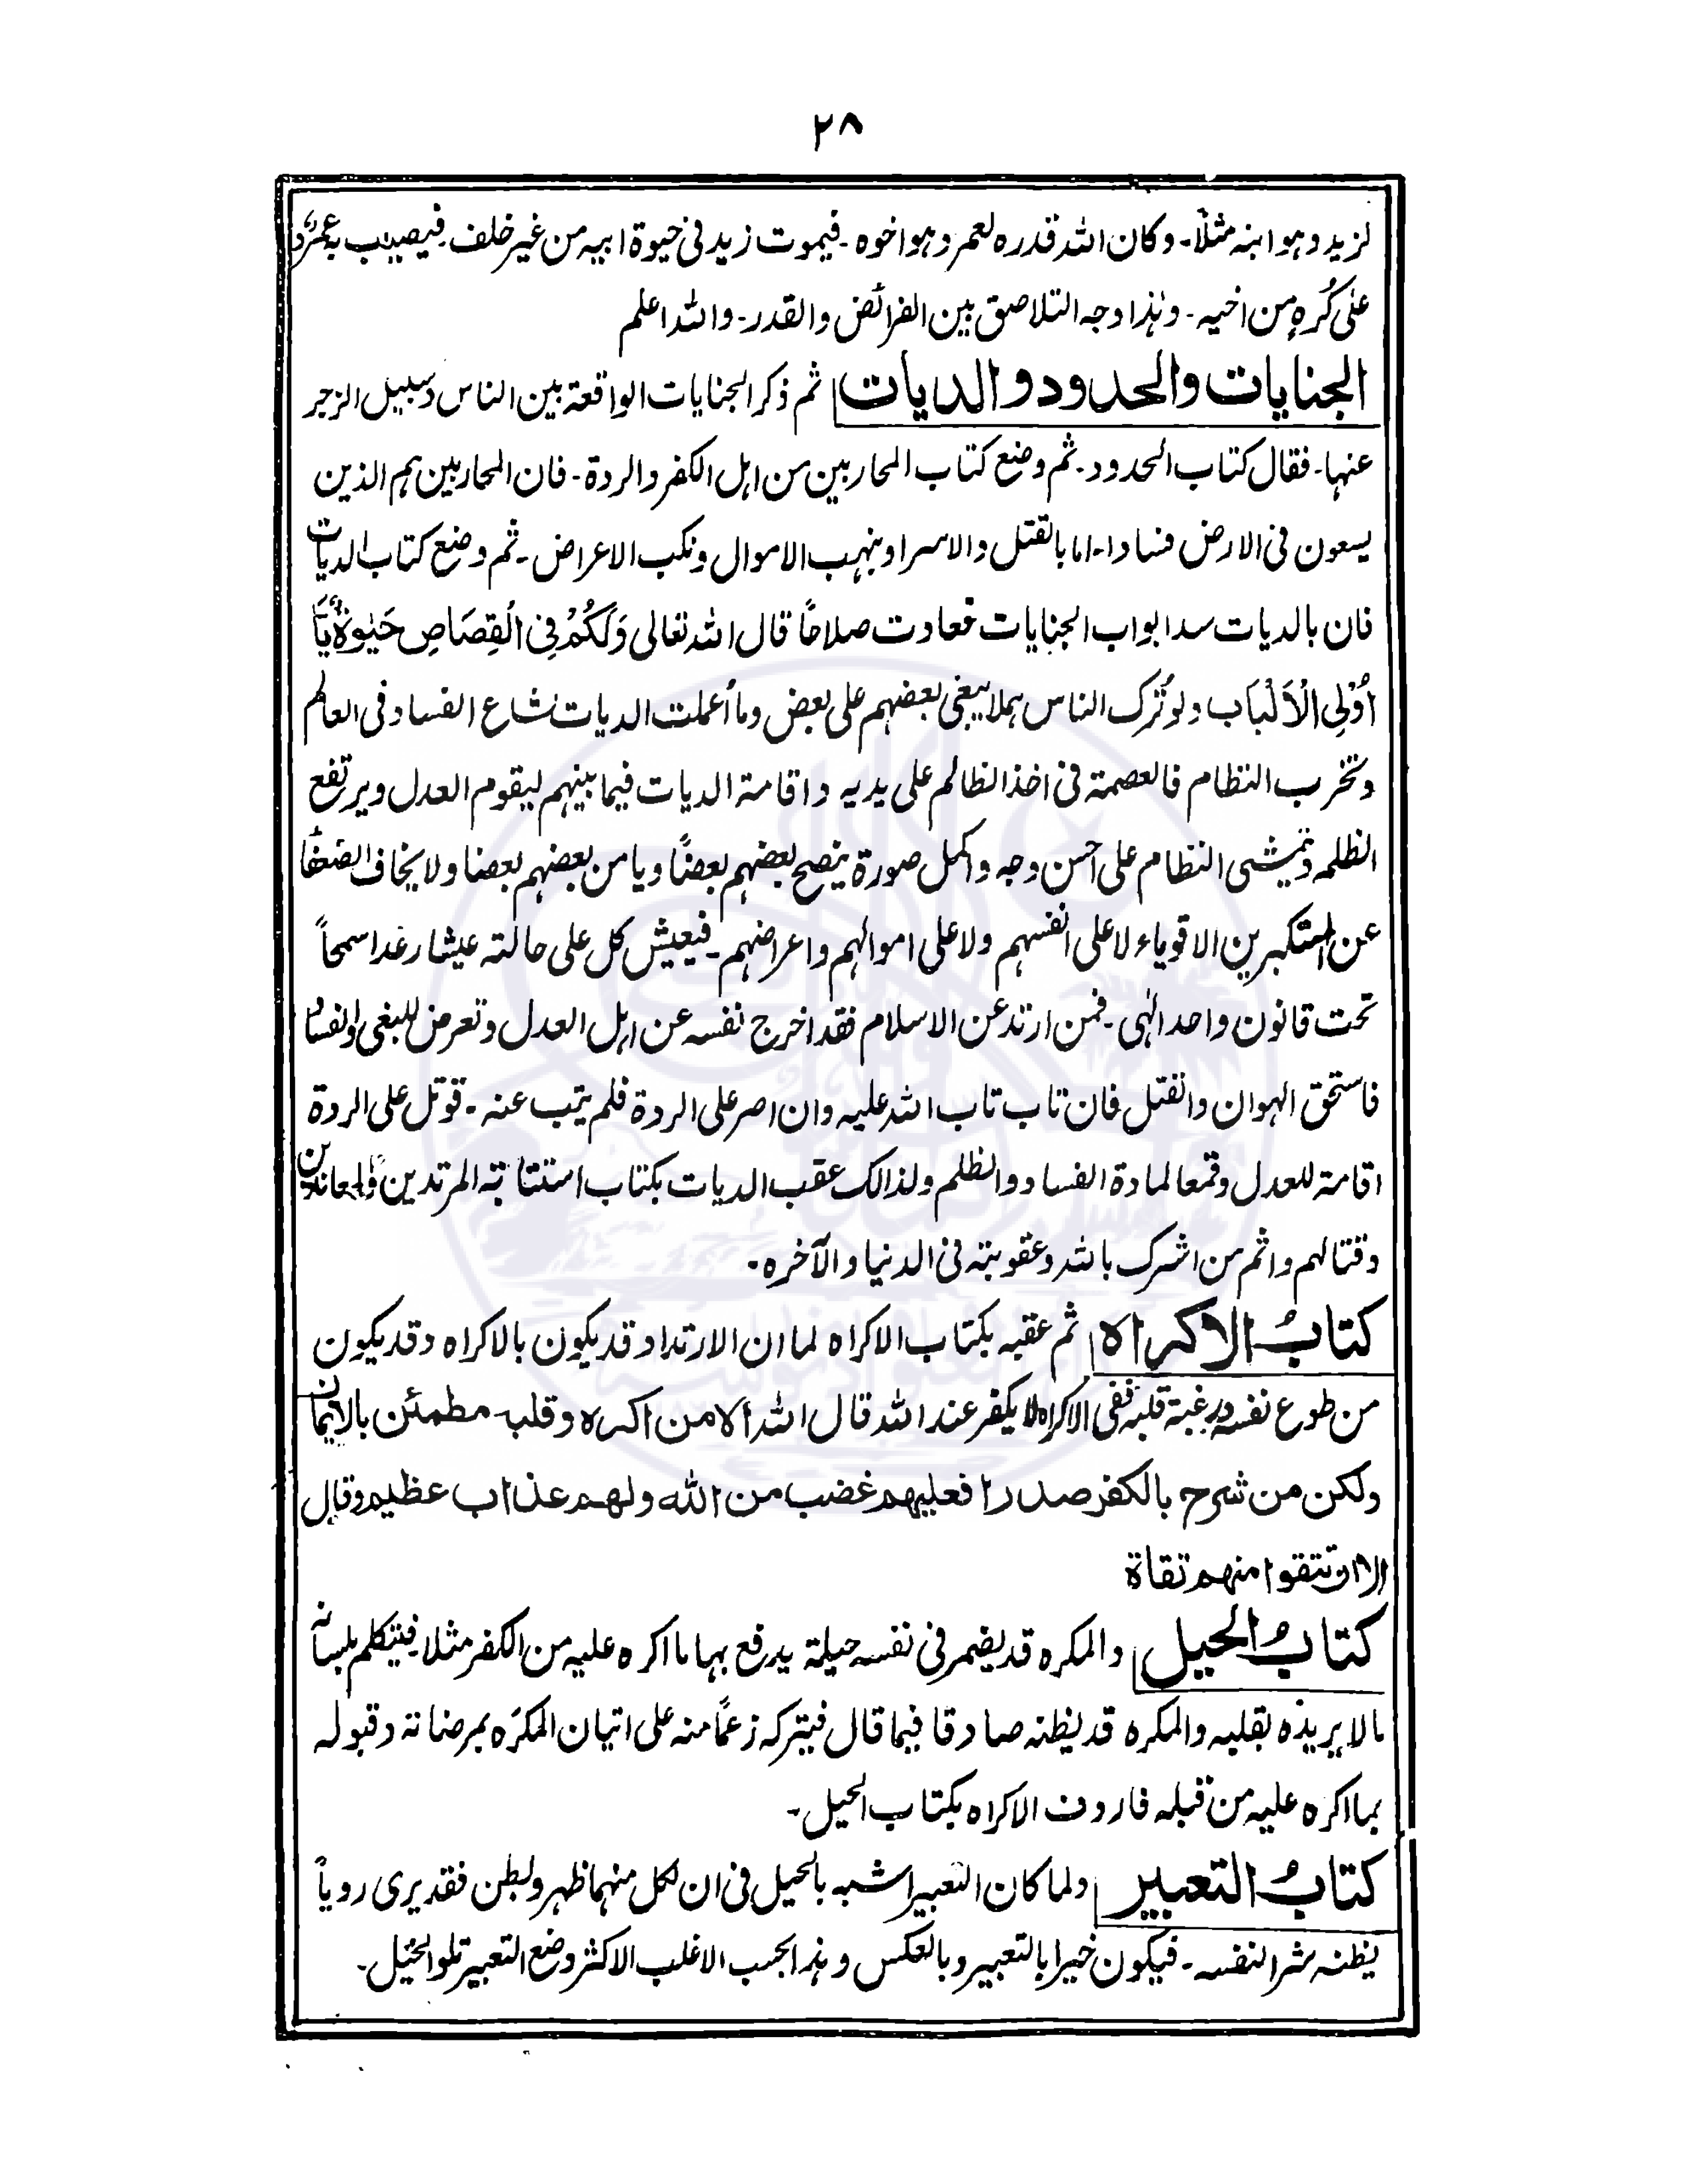 ۲۸
لزيد وهو ابنه مثلاً۔ وكان الله قدره لعمر وهو اخوه۔ فيموت زيد فى حيوة ابيه من غير خلف۔ فيصيب به عمرو
على كُرهٍ من اخيه۔ وهذا وجه التلاصق بين الفرائض والقدر۔ والله اعلم
الجنايات والحدود والديات ثم ذكر الجنايات الواقعة بين الناس وسبيل الزجر
عنها۔ فقال كتاب الحدود۔ ثم وضع كتاب المحاربين من اهل الكفر والردة۔ فان المحاربين هم الذين
يسعون فى الارض فسادا۔ اما بالقتل والاسر او بنهب الاموال ونكب الاعراض۔ ثم وضع كتاب الديات
فان بالديات سد ابواب الجنايات فعادت صلاحًا قال الله تعالى وَلَكُمْ فِى الْقِصَاصِ حَيٰوةٌ يَّا
اُوْلِى الْاَلْبَاب ولو تُرك الناس هملا يبغى بعضهم على بعض وما أعملت الديات لشاع الفساد فى العالم
وتخرب النظام فالعصمة فى اخذ الظالم على يديه واقامة الديات فيما بينهم ليقوم العدل ويرتفع
الظلمه وتمشى النظام على احسن وجه واكمل صورة ينصح بعضهم بعضًا ويامن بعضهم بعضا ولا يخاف الضعفا
عن المستكبرين الاقوياء لا على انفسهم ولا على اموالهم واعراضهم۔ فيعيش كل على حالته عيشا رغدا سمحاً
تحت قانون واحد الٰهى۔ فمن ارتد عن الاسلام فقد اخرج نفسه عن اهل العدل وتعرض للبغى والفساد
فاستحق الهوان والقتل فان تاب تاب الله عليه وان اصر على الردة فلم يتب عنه۔ قوتل على الردة
اقامة للعدل وقمعا لمادة الفساد والظلم ولذالك عقب الديات بكتاب استتابة المرتدين والمعاندين
وقتالهم واثم من اشرك بالله وعقوبته فى الدنيا والآخره۔
كتابُ الاكراه ثم عقبه بكتاب الاكراه لما ان الارتداد قد يكون بالاكراه وقد يكون
من طوع نفسه ورغبة قلبه ففى الاكراه لا يكفر عند الله قال الله الا من اكره وقلبه مطمئن بالايمان
ولكن من شرح بالكفر صدرا فعليهم غضب من الله ولهم عذاب عظيم وقال
الا ان تتقوا منهم تقاة
كتابُ الحيل والمكره قد يضمر فى نفسه حيلة يدفع بها ما اكره عليه من الكفر مثلا۔ فيتكلم بلسانه
ما لا يريده بقلبه والمكره قد يظنه صادقا فيما قال فيتركه زعمًا منه على اتيان المكرَه بمرضاته وقبوله
بما اكره عليه من قبله فاردف الاكراه بكتاب الحيل۔
كتابُ التعبير ولما كان التعبير اشبه بالحيل فى ان لكل منهما ظهر وبطن فقد يرى روياً
يظنه شر النفسه۔ فيكون خيرا بالتعبير وبالعكس وهذا بحسب الاغلب الاكثر وضع التعبير تلو الحيل۔